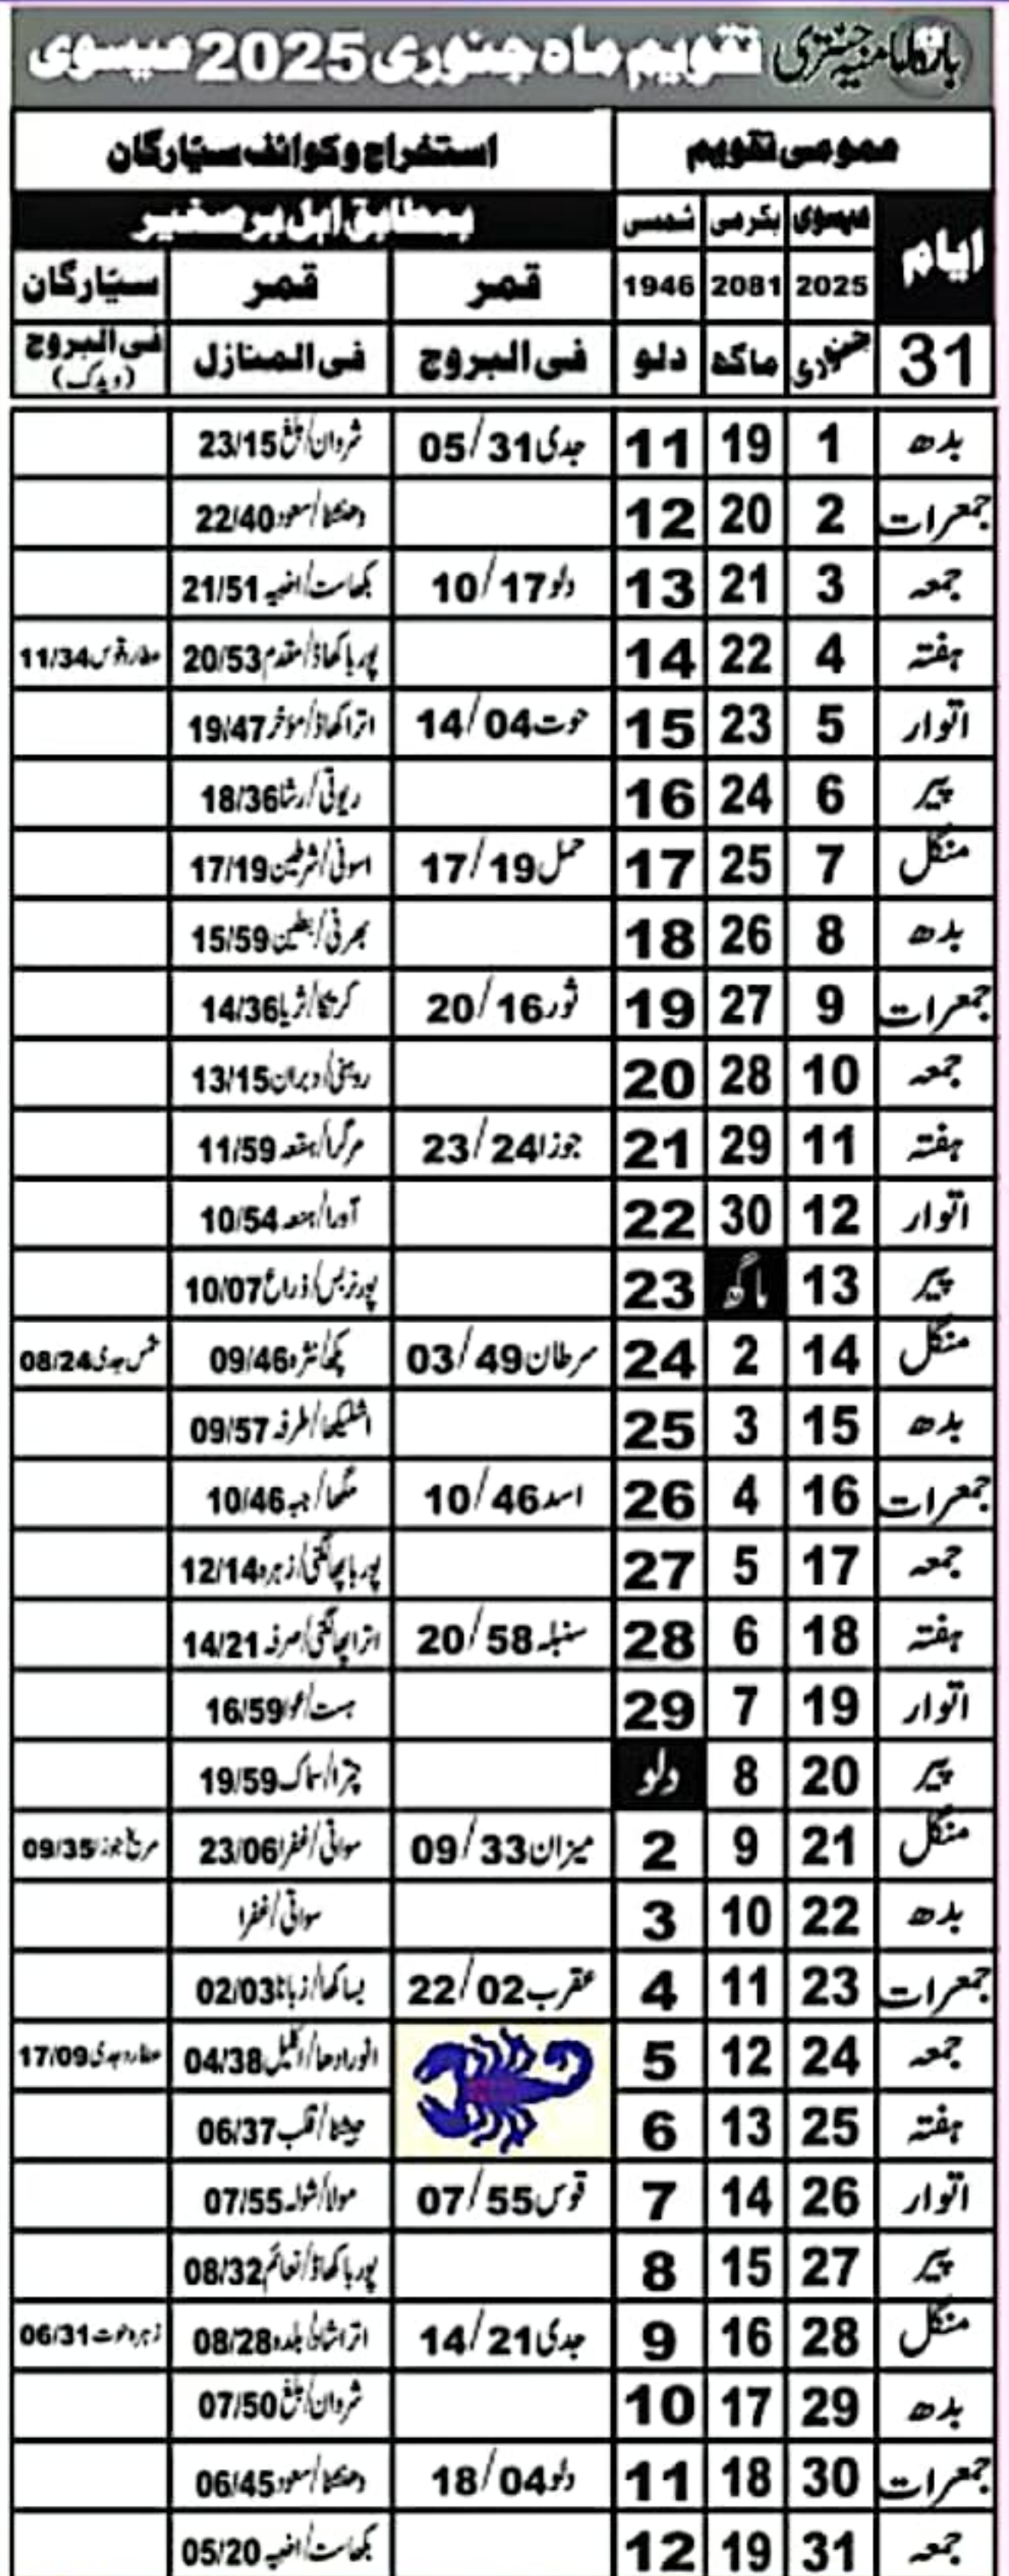 تقویم ماہ جنوری 2025 عیسوی
عمومی تقویم استخراج و کوائف سیّارگان
ایام عیسوی بکرمی شمسی بمطابق اہل برصغیر
2025 2081 1946 قمر قمر سیّارگان
31 جنوری ماگھ دلو فی البروج فی المنازل فی البروج (ویدک)
بدھ 1 19 11 جدی 05/31 شروان/بلغ 23/15
جمعرات 2 20 12 دھنشٹا/سعود 22/40
جمعہ 3 21 13 دلو 10/17 بکھاست/اخبیہ 21/51
ہفتہ 4 22 14 پوربا کھاڈ/مقدم 20/53 عطارد قوس 11/34
اتوار 5 23 15 حوت 14/04 اترا کھاڈ/مؤخر 19/47
پیر 6 24 16 ریوتی/رشا 18/36
منگل 7 25 17 حمل 17/19 اسونی/شرطین 17/19
بدھ 8 26 18 بھرنی/بطین 15/59
جمعرات 9 27 19 ثور 20/16 کرتکا/ثریا 14/36
جمعہ 10 28 20 روہنی/دبران 13/15
ہفتہ 11 29 21 جوزا 23/24 مرگسرا/ہقعہ 11/59
اتوار 12 30 22 آدرا/ہنعہ 10/54
پیر 13 ماگھ 23 پورنربس/ذراع 10/07
منگل 14 2 24 سرطان 03/49 پکھ/نثرہ 09/46 شمس جدی 08/24
بدھ 15 3 25 اشلیکھا/طرفہ 09/57
جمعرات 16 4 26 اسد 10/46 مگھا/جبہ 10/46
جمعہ 17 5 27 پوربا پھالگنی/زہرہ 12/14
ہفتہ 18 6 28 سنبلہ 20/58 اترا پھالگنی/صرفہ 14/21
اتوار 19 7 29 ہست/عوا 16/59
پیر 20 8 دلو چترا/سماک 19/59
منگل 21 9 2 میزان 09/33 سواتی/غفرا 23/06 مریخ جوزا 09/35
بدھ 22 10 3 سواتی/غفرا
جمعرات 23 11 4 عقرب 22/02 بساکھا/زبانا 02/03
جمعہ 24 12 5 انورادھا/اکلیل 04/38 عطارد جدی 17/09
ہفتہ 25 13 6 جیشٹا/قلب 06/37
اتوار 26 14 7 قوس 07/55 مولا/شولہ 07/55
پیر 27 15 8 پوربا کھاڈ/نعائم 08/32
منگل 28 16 9 جدی 14/21 اترا شاڈ/بلدہ 08/28 زہرہ حوت 06/31
بدھ 29 17 10 شروان/بلغ 07/50
جمعرات 30 18 11 دلو 18/04 دھنشٹا/سعود 06/45
جمعہ 31 19 12 بکھاست/اخبیہ 05/20